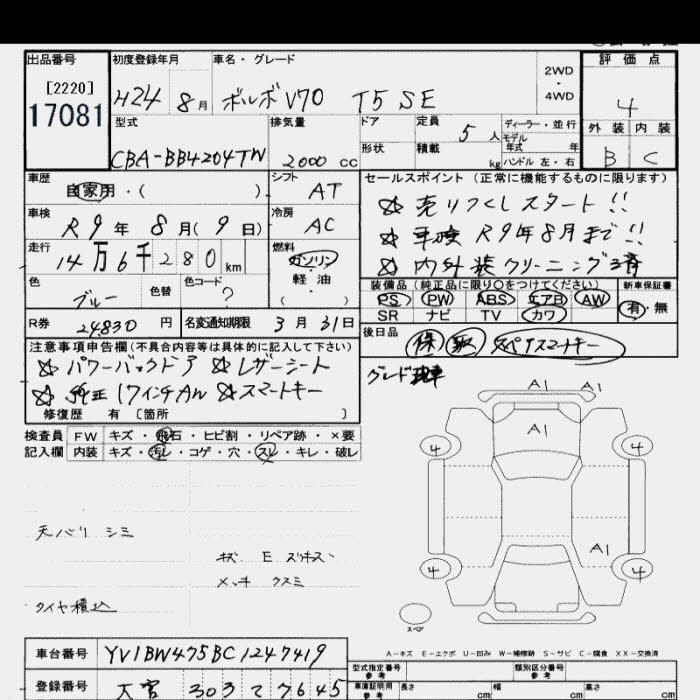 出品番号 初度登録年月 車名・グレード 評価点
[2220] 2WD
17081 H24 8月 ボルボ V70 T5 SE ・4WD 4
型式 排気量 ドア 定員 5人 ディーラー・並行 外装 内装
モデル
CBA-BB4204TW 2000 cc 形状 積載 kg 年式 年 B C
ハンドル 左・右
車歴 シフト セールスポイント(正常に機能するものに限ります)
自家用・( ) AT ☆ 売りつくしスタート!!
車検 冷房 ☆ 車検 R9年8月まで!!
R9年 8月(9日) AC ☆ 内外装クリーニング済
走行 燃料
14万6千280km ガソリン
軽油
色 色替 色コード 装備品(純正品に限り○をつけてください) 新車保証書
ブルー ? PS PW ABS エアB AW 有・無
SR ナビ TV カワ
R券 24830円 名変通知期限 3月31日 後日品 保 取 スペアスマートキー
注意事項申告欄(不具合内容等は具体的に記入して下さい)
☆ パワーバックドア ☆ レザーシート
☆ 純正17インチAW ☆ スマートキー
修復歴 有 [箇所 ]
検査員 FW キズ・飛石・ヒビ割・リペア跡・×要
記入欄 内装 キズ・汚レ・コゲ・穴・スレ・キレ・破レ
A1 A1
A1
4 4
天バリ シミ
A1
キズ E スリキズ
メッキ クスミ
4 4
タイヤ積込
スペア
A-キズ E-エクボ U-凹み W-補修跡 S-サビ C-腐食 XX-交換済
車台番号 YV1BW475BC1247419
型式指定番号 参考 類別区分番号 参考
登録番号 大宮 303 7645
車庫証明用 参考 長さ cm 幅 cm 高さ cm